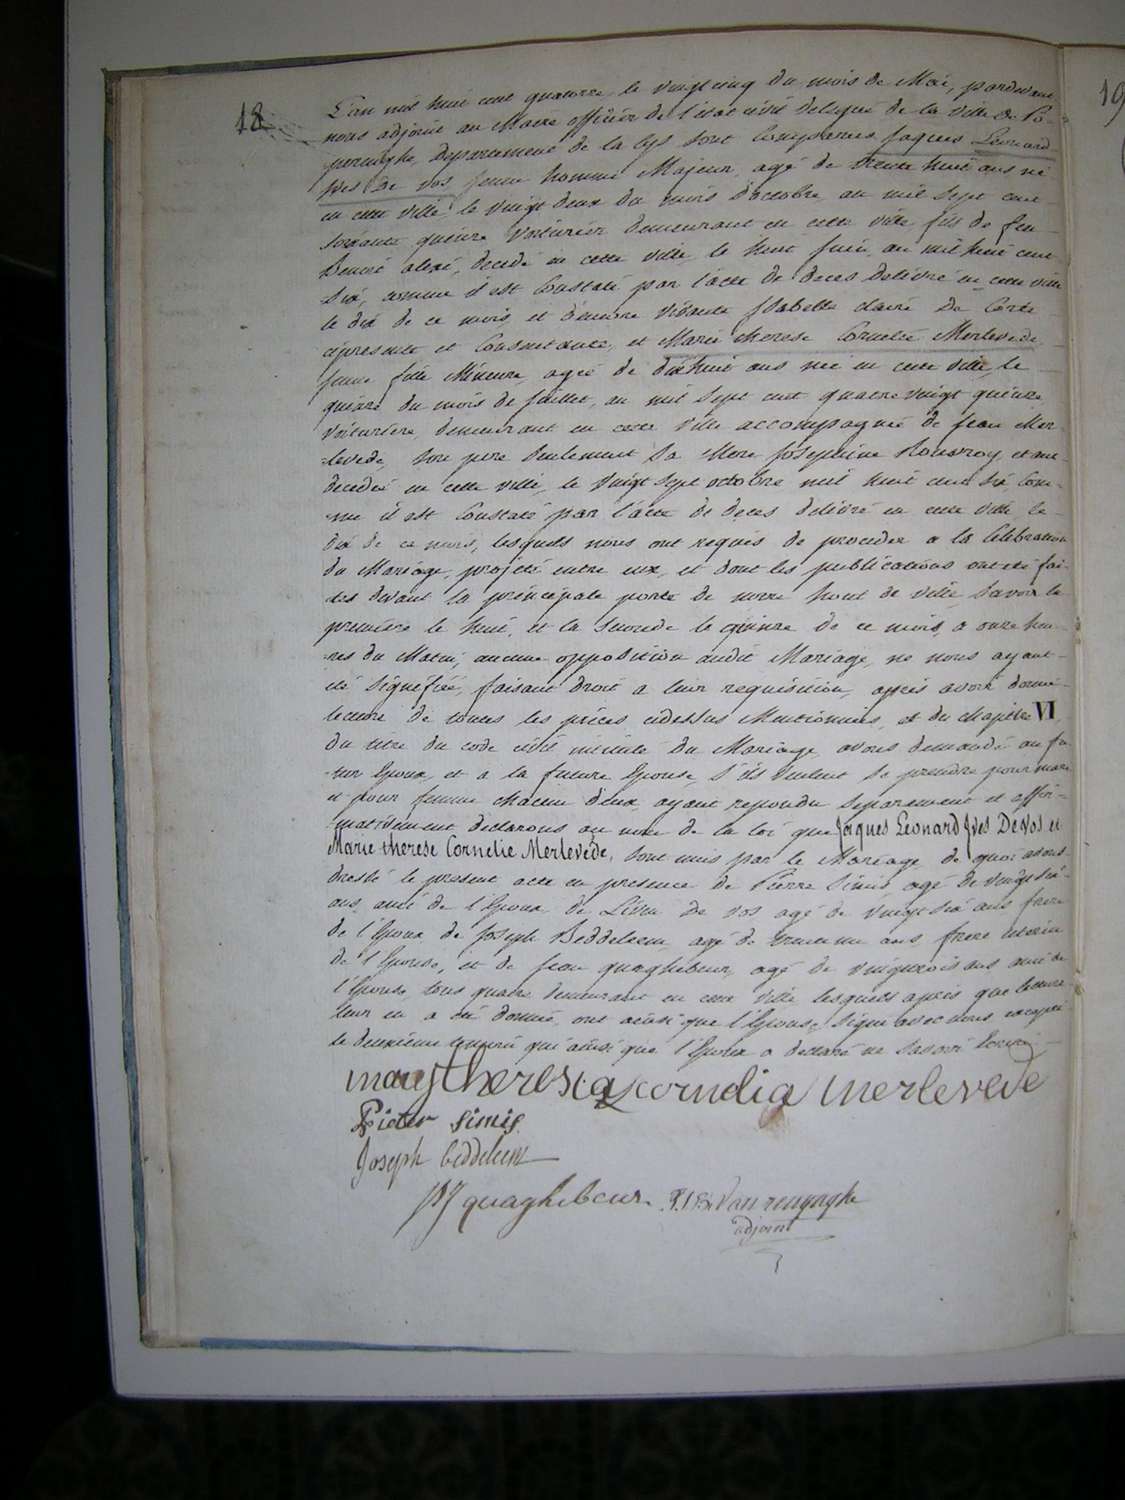 18
19
L'an mil huit cent quatorze, le vingt cinq du mois de Mai, pardevant
nous adjoint au Maire officier de l'état civil delegué de la Ville de Po-
peringhe, Departement de la Lys sont Comparus Jaques Leonard
Yves De vos jeune homme Majeur, agé de trente huit ans né
en cette ville, le vingt deux du mois d'octobre an mil sept cent
soixante quinze Voiturier demeurant en cette ville fils de feu
Benoit alexé, decedé en cette ville, le huit juin, an mil huit cent
six, comme il est Constaté par l'acte de deces delivré en cette ville
le dix de ce mois, et d'encore vivante Isabelle claire De Corte
cipresente et Consentante, et Marie therese Cornelie Merlevede,
jeune fille Mineure, agée de dixhuit ans née en cette ville, le
quinze du mois de Juillet, an mil sept cent quatre vingt quinze,
Voituriere, demeurant en cette ville accompagnée de jean Mer-
levede, son pere seulement sa Mere Josephine etant
decedée en cette ville, le vingt sept octobre mil huit cent six, Com-
me il est Constaté par l'acte de deces delivré en cette ville le
dix de ce mois, lesquels nous ont requis de proceder a la Celebration
du Mariage, projeté entre eux, et dont les publications ont eté fai-
tes devant la principale porte de notre hotel de ville, savoir la
premiere le huit, et la seconde le quinze de ce mois, a onze heu-
res du Matin, aucune opposition audit Mariage, ne nous ayant
eté signifiée, faisant droit a leur requisition, apres avoir donné
lecture de toutes les pièces cidessus Mentionnées, et du chapitre VI
du titre du code civil intitulé du Mariage, avons demandé au fu-
tur Epoux, et a la future Epouse, s'ils veulent se prendre pour mari
et pour femme chacun d'eux, ayant repondu separement et affir-
mativement, declarons au nom de la loi que Jaques Leonard Yves De Vos et
Marie therese Cornelie Merlevede, sont unis par le Mariage de quoi avons
dressé le present acte en presence de Pierre Simis agé de vingt six
ans, ami de l'Epoux, de Livin De vos agé de vingt six ans frere
de l'Epoux, de Joseph Beddeleem agé de trente un ans frere uterin
de l'Epouse, et de jean quaghebeur, agé de vingt trois ans ami de
l'Epouse, tous quatre demeurant en cette ville lesquels apres que lecture
leur en a eté donnée, ont ainsi que l'Epouse, signé avec nous excepté
le deuxieme temoin qui ainsi que l'Epoux a declaré ne savoir ecrire
marytheresia cornelia merlevede
Pieter Simis
Joseph beddeleem
quaghebeur. Van renynghe
adjoint